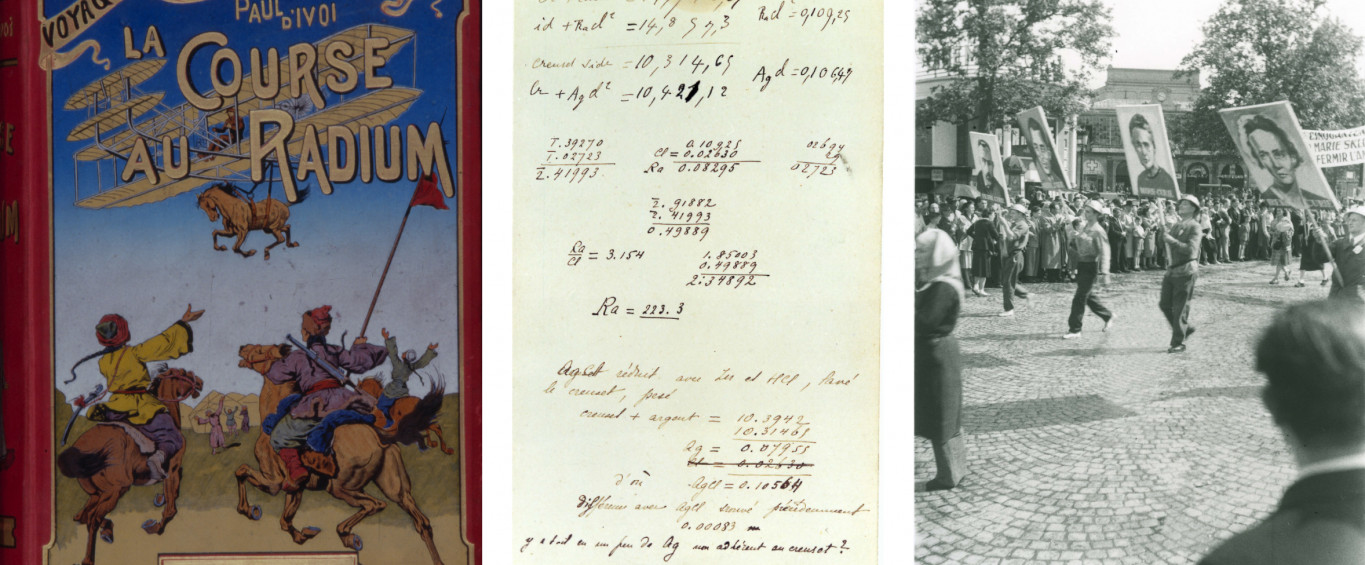 VOYAG
PAUL
D'IVOI
LA
COURSE
AU RADIUM
id + Rad² = 14,8 5 7,3
Rad² = 0,109,25
creuset vide = 10,314,65
Ag d = 0,10647
+ Agd² = 10,421,12
1.39270
1.02723
2.41993
0.10925
Cl = 0.02630
Ra 0.08295
02694
29
02723
2.91882
2.41993
0.49889
Ra/Cl = 3.154
1.85003
0.49889
2.34892
Ra = 223.3
réduit avec Zn et HCl, lavé
le creuset, pesé
creuset + argent = 10.3942
10.31465
Ag = 0.07955
Cl = 0.02630
d'où AgCl = 0.10564
différence avec AgCl trouvé précédemment
0.00083
y a t-il eu un peu de Ag non adhérent au creuset ?
CINQUANTEN
MARIE SKLO
FERMIR L'AM